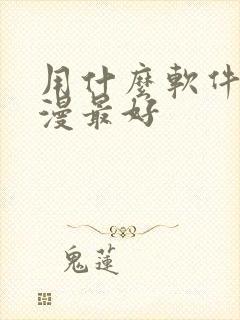 用什麼軟件
漫最好
鬼蓮